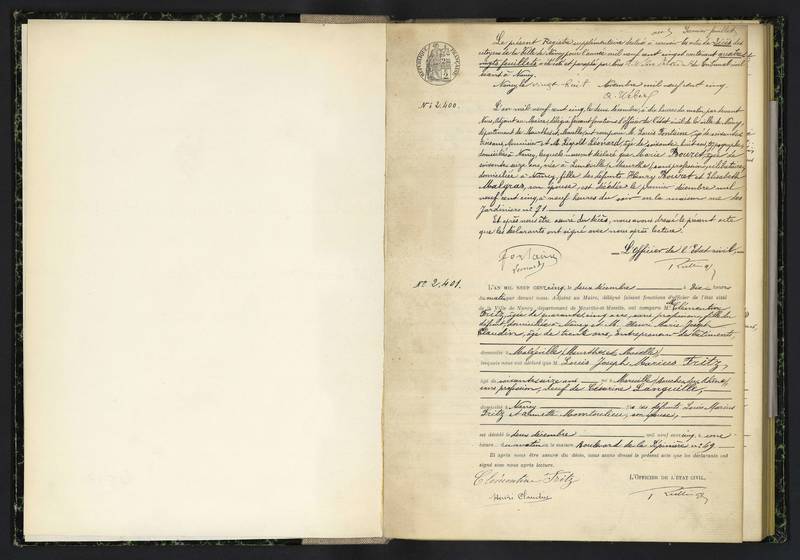 Premier feuillet
Le présent Registre supplémentaire destiné à servir de décès des
citoyens de la Ville de Nancy pour l'année mil neuf cent cinq et contenant quatre
vingts feuillets a été coté et paraphé par Nous du Tribunal civil
séant à Nancy.
Nancy le vingt huit Novembre mil neuf cent cinq
RÉPUBLIQUE FRANÇAISE
N° 2.400.
L'an mil neuf cent cinq, le deux décembre, à dix heures du matin, par devant
Nous, Adjoint au Maire, délégué faisant fonctions d'officier de l'état civil de la ville de Nancy,
département de Meurthe et Moselle, ont comparu M. Louis Fontaine âgé de soixante
ans, et M. Léopold Léonard, âgé de soixante huit ans, typographe,
domiciliés à Nancy, lesquels nous ont déclaré que Marie Bouret, âgée de
soixante onze ans, née à Lunéville (Meurthe) sans profession, célibataire,
domiciliée à Nancy, fille des défunts Henry Bouret et Elisabeth
Malgras, son épouse, est décédée le premier décembre mil
neuf cent cinq, à neuf heures du soir en la maison rue des
Jardiniers n° 71
Et après nous être assuré du décès, nous avons dressé le présent acte
que les déclarants ont signé avec nous après lecture.
L'Officier de l'Etat civil,
Léonard
N° 2.401.
L'AN MIL NEUF CENT cinq, le deux décembre à dix heures
du matin par devant nous, Adjoint au Maire, délégué faisant fonctions d'officier de l'état civil
de la Ville de Nancy, département de Meurthe-et-Moselle, ont comparu Clémentine
Fritz, âgée de quarante cinq ans, sans profession, fille du
défunt, domiciliée à Nancy et M. Henri Marie Joseph
Claudin, âgé de trente ans, Entrepreneur de bâtiments,
domicilié à Malzéville (Meurthe et Moselle)
lesquels nous ont déclaré que M. Louis Joseph Marius Fritz,
âgé de soixante seize ans né à Marseille (Bouches du Rhône)
sans profession, veuf de Césarine Languille,
domicilié à Nancy fils des défunts Louis Marius
Fritz et Annette Montoulieu, son épouse,
est décédé le deux décembre mil neuf cent cinq, à une
heure du matin en la maison Boulevard de la Pépinière n° 49
Et après nous être assuré du décès, nous avons dressé le présent acte que les déclarants ont
signé avec nous après lecture.
L'OFFICIER DE L'ÉTAT CIVIL,
Clémentine Fritz
Henri Claudin